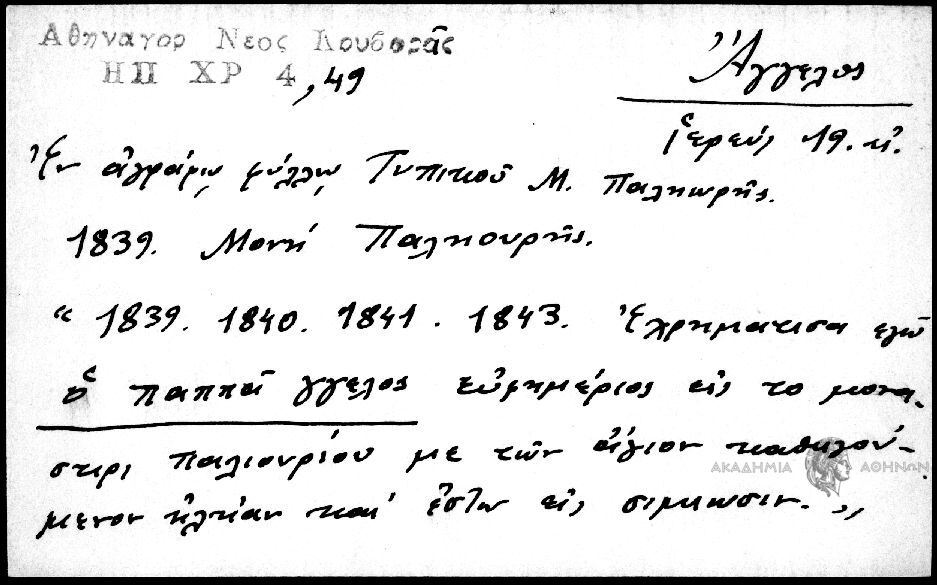 Αθηναγορ Νεος Κουβαρᾶς
ΗΠ ΧΡ 4, 49
Ἄγγελος
ἱερεύς 19. αἰ.
Ἐν ἀγράφῳ φύλλῳ Τυπικοῦ Μ. Παληωρῆς.
1839. Μονή Παληουρῆς.
“ 1839. 1840. 1841. 1843. Ἐχρημάτισα εγώ
ὁ παππᾶ γγελος εὐφημέριος εἰς το μονα-
στιρι παλιουρίου με τῶν ἅγιον καθιγού-
μενον ἠλίαν καί ἔστω εἰς σιμιωσιν.„
ΑΚΑΔΗΜΙΑ ΑΘΗΝΩΝ